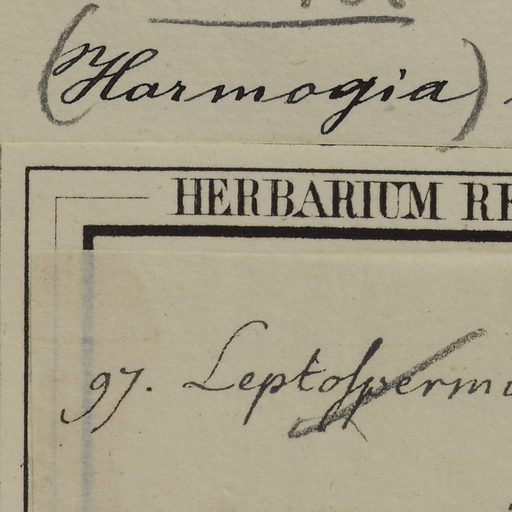 (Harmogia)
HERBARIUM RE
97. Leptospermu